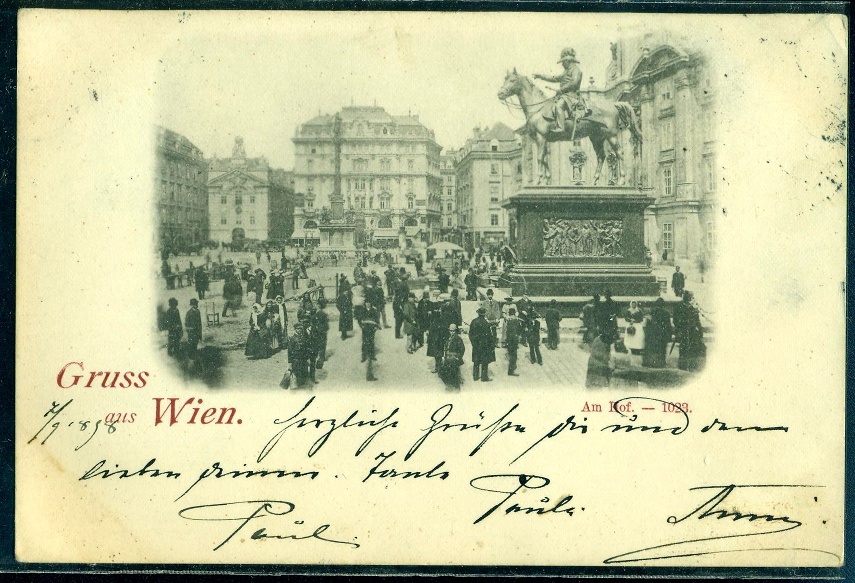 Gruss
aus Wien.
Am Hof. — 1023.
7/9 898
herzliche Grüße dir und den
lieben deinen. Tante
Paula.
Paul